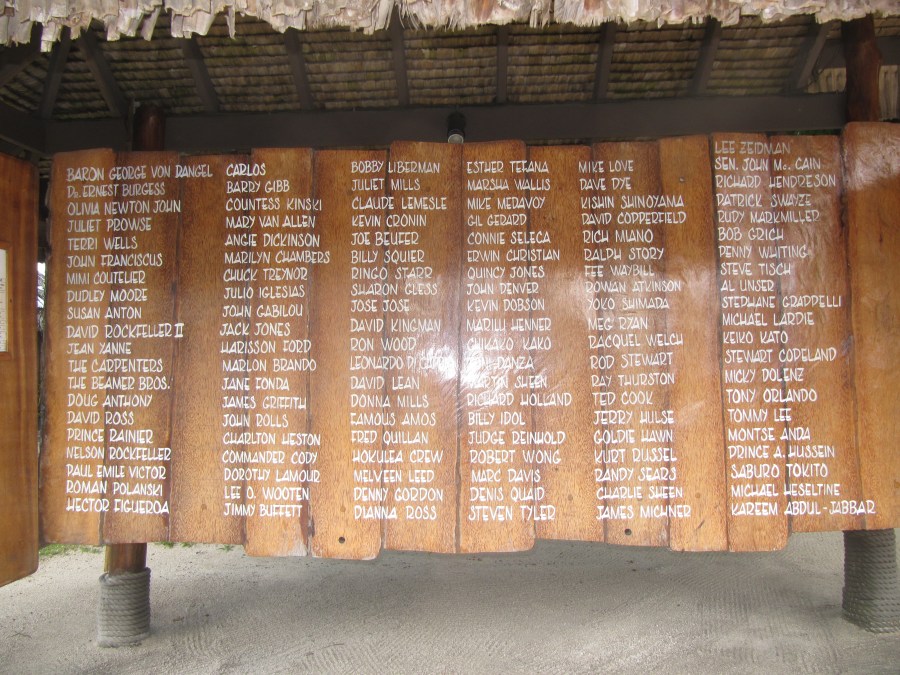 BARON GEORGE VON DANGEL
Dr. ERNEST BURGESS
OLIVIA NEWTON JOHN
JULIET PROWSE
TERRI WELLS
JOHN FRANCISCUS
MIMI COUTELIER
DUDLEY MOORE
SUSAN ANTON
DAVID ROCKFELLER II
JEAN YANNE
THE CARPENTERS
THE BEAMER BROS.
DOUG ANTHONY
DAVID ROSS
PRINCE RAINIER
NELSON ROCKFELLER
PAUL EMILE VICTOR
ROMAN POLANSKI
HECTOR FIGUEROA
CARLOS
BARRY GIBB
COUNTESS KINSKI
MARY VAN ALLEN
ANGIE DICKINSON
MARILYN CHAMBERS
CHUCK TREYNOR
JULIO IGLESIAS
JOHN GABILOU
JACK JONES
HARISSON FORD
MARLON BRANDO
JANE FONDA
JAMES GRIFFITH
JOHN ROLLS
CHARLTON HESTON
COMMANDER CODY
DOROTHY LAMOUR
LEE O. WOOTEN
JIMMY BUFFETT
BOBBY LIBERMAN
JULIET MILLS
CLAUDE LEMESLE
KEVIN CRONIN
JOE BEUFER
BILLY SQUIER
RINGO STARR
SHARON GLESS
JOSE JOSE
DAVID KINGMAN
RON WOOD
LEONARDO DI
DAVID LEAN
DONNA MILLS
FAMOUS AMOS
FRED QUILLAN
HOKULEA CREW
MELVEEN LEED
DENNY GORDON
DIANNA ROSS
ESTHER TEFANA
MARSHA WALLIS
MIKE MEDAVOY
GIL GERARD
CONNIE SELECA
ERWIN CHRISTIAN
QUINCY JONES
JOHN DENVER
KEVIN DOBSON
MARILU HENNER
CHIKAKO KAKO
DANZA
MARTIN SHEEN
RICHARD HOLLAND
BILLY IDOL
JUDGE REINHOLD
ROBERT WONG
MARC DAVIS
DENIS QUAID
STEVEN TYLER
MIKE LOVE
DAVE DYE
KISHIN SHINOYAMA
DAVID COPPERFIELD
RICH MIANO
RALPH STORY
FEE WAYBILL
ROWAN ATKINSON
YOKO SHIMADA
MEG RYAN
RACQUEL WELCH
ROD STEWART
RAY THURSTON
TED COOK
JERRY HULSE
GOLDIE HAWN
KURT RUSSEL
RANDY SEARS
CHARLIE SHEEN
JAMES MICHNER
LEE ZEIDMAN
SEN. JOHN Mc. CAIN
RICHARD HENDRESON
PATRICK SWAYZE
RUDY MARKMILLER
BOB GRICH
PENNY WHITING
STEVE TISCH
AL UNSER
STEPHANE GRAPPELLI
MICHAEL LARDIE
KEIKO KATO
STEWART COPELAND
MICKY DOLENZ
TONY ORLANDO
TOMMY LEE
MONTSE ANDA
PRINCE A. HUSSEIN
SABURO TOKITO
MICHAEL HESELTINE
KAREEM ABDUL-JABBAR